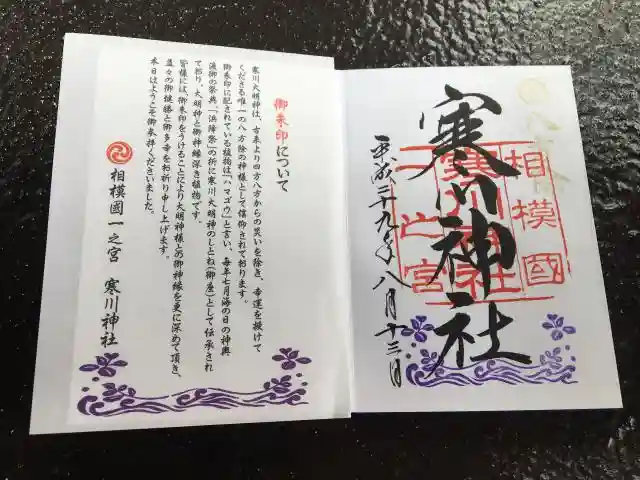 御朱印について
寒川大明神は、古来より四方八方からの災いを除き、幸運を授けて
くださる唯一の八方除の神様として信仰されております。
御朱印に配されている植物は「ハマゴウ」と言い、毎年七月海の日の神輿
渡御の祭典「浜降祭」の折に寒川大明神のしとね(御座)として伝承され
ており、大明神と御神縁深き植物です。
皆様には、御朱印をうけることにより大明神様との御神縁を更に深めて頂き、
益々の御健勝と御多幸をお祈り申し上げます。
本日はようこそ御参拝くださいました。
相模國一之宮 寒川神社
相模國
寒川神社
一之宮
寒川神社
平成二十九年八月十三日